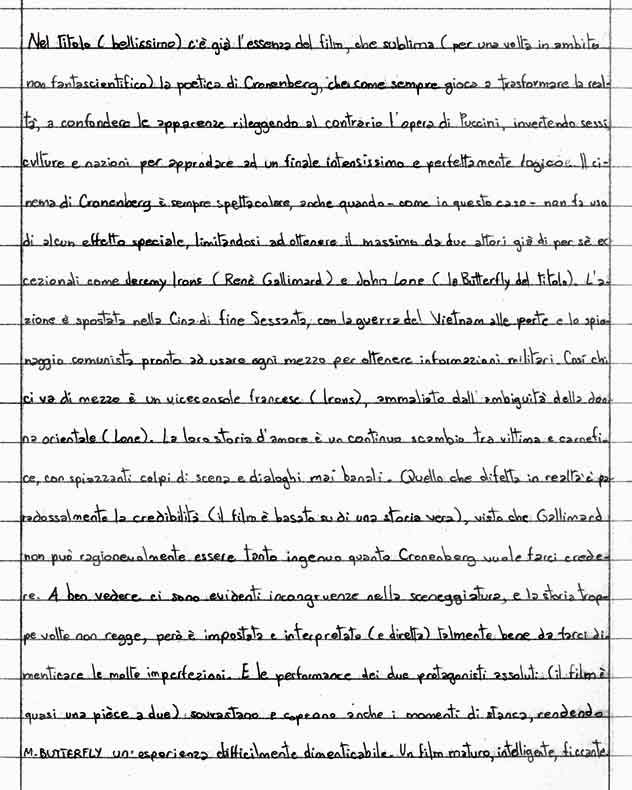 Nel titolo (bellissimo) c'è già l'essenza del film, che sublima (per una volta in ambito
non fantascientifico) la poetica di Cronenberg, che come sempre gioca a trasformare la real-
tà, a confondere le apparenze rileggendo al contrario l'opera di Puccini, invertendo sessi
culture e nazioni per approdare ad un finale intensissimo e perfettamente logico. Il ci-
nema di Cronenberg è sempre spettacolare, anche quando - come in questo caso - non fa uso
di alcun effetto speciale, limitandosi ad ottenere il massimo da due attori già di per sè ec
cezionali come Jeremy Irons (Renè Gallimard) e John Lone (la Butterfly del titolo). L'a-
zione è spostata nella Cina di fine Sessanta, con la guerra del Vietnam alle porte e lo spio-
naggio comunista pronto ad usare ogni mezzo per ottenere informazioni militari. Così chi
ci va di mezzo è un viceconsole francese (Irons), ammaliato dall'ambiguità della don-
na orientale (Lone). La loro storia d'amore è un continuo scambio tra vittima e carnefi-
ce, con spiazzanti colpi di scena e dialoghi mai banali. Quello che difetta in realtà è pa-
radossalmente la credibilità (il film è basato su di una storia vera), visto che Gallimard
non può ragionevolmente essere tanto ingenuo quanto Cronenberg vuole farci crede-
re. A ben vedere ci sono evidenti incongruenze nella sceneggiatura, e la storia trop-
pe volte non regge, però è impostata e interpretata (e diretta) talmente bene da farci di-
menticare le molte imperfezioni. E le performance dei due protagonisti assoluti (il film è
quasi una pièce a due) sovrastano e coprono anche i momenti di stanca, rendendo
M. BUTTERFLY un'esperienza difficilmente dimenticabile. Un film maturo, intelligente, ficcante.